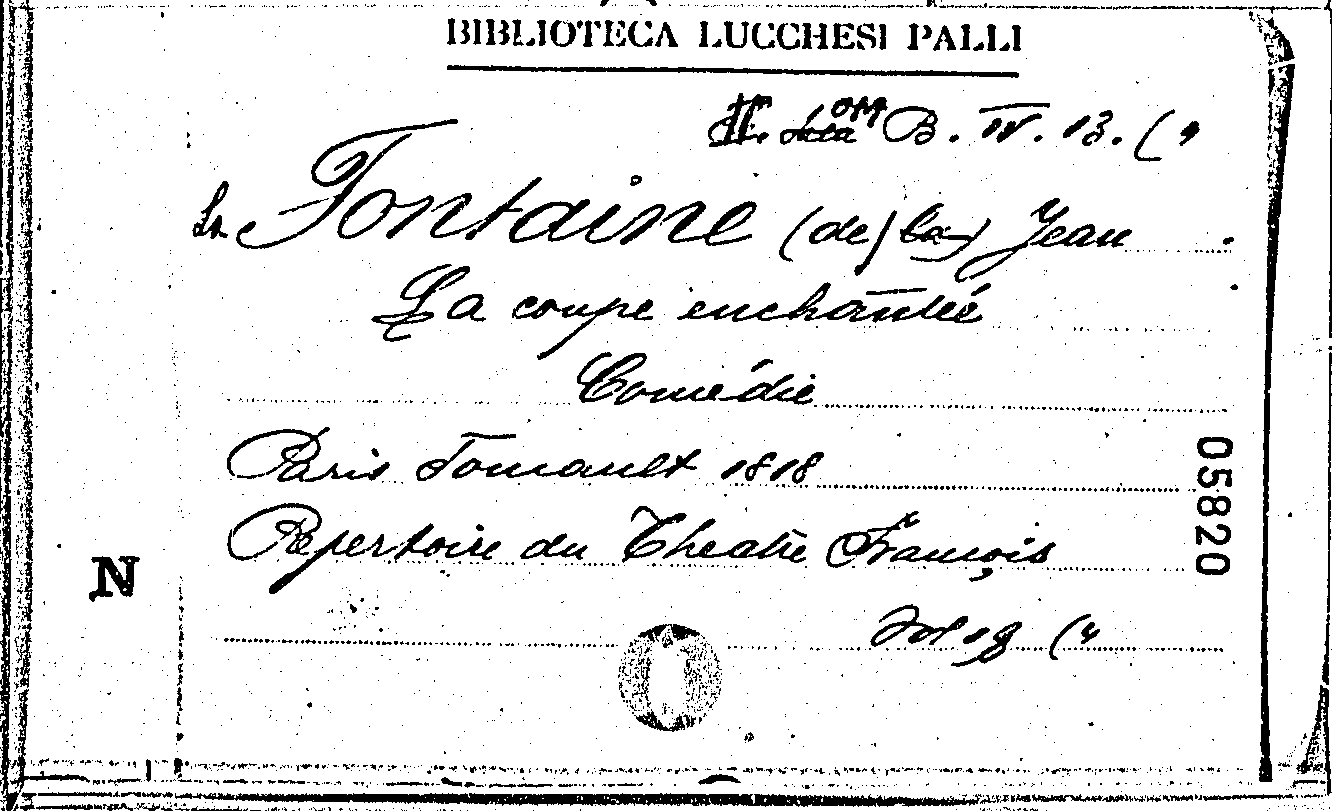 BIBLIOTECA LUCCHESI PALLI
B. IV. 13. (4
La Fontaine (de) la) Jean
La coupe enchantée
Comédie
Paris Tomault 1818
05820
Repertoire du Theatre François
N
Vol 18 (4